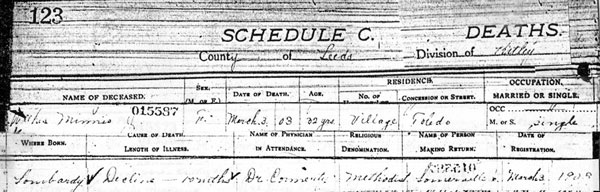 123
SCHEDULE C. DEATHS.
County of Leeds Division of
RESIDENCE. OCCUPATION,
NAME OF DECEASED. SEX. (M. OR F.) DATE OF DEATH. AGE. NO. OF CONCESSION OR STREET. MARRIED OR SINGLE.
015587 OCC
Minnie F. March 3, 03 22 yrs. Village Toledo M. or S. Single
WHERE BORN. CAUSE OF DEATH. NAME OF PHYSICIAN RELIGIOUS NAME OF PERSON DATE OF
LENGTH OF ILLNESS. IN ATTENDANCE. DENOMINATION. MAKING RETURN. REGISTRATION.
Lombardy Decline Dr. Methodist March 3